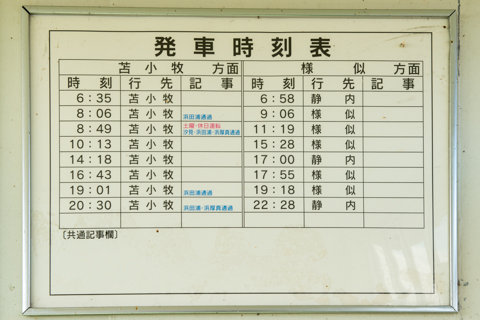 発車時刻表
苫小牧 方面 様似 方面
時刻 行先 記事 時刻 行先 記事
6:35 苫小牧 6:58 静内
8:06 苫小牧 浜田浦通過 9:06 様似
8:49 苫小牧 土曜・休日運転 11:19 様似
汐見・浜田浦・浜厚真通過
10:13 苫小牧 15:28 様似
14:18 苫小牧 17:00 静内
16:43 苫小牧 17:55 様似
19:01 苫小牧 浜田浦通過 19:18 様似
20:30 苫小牧 浜田浦・浜厚真通過 22:28 静内
〔共通記事欄〕